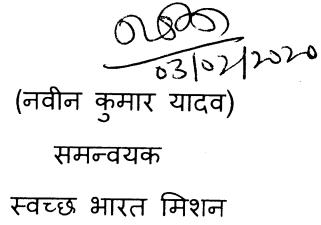 03/02/2020
(नवीन कुमार यादव)
समन्वयक
स्वच्छ भारत मिशन